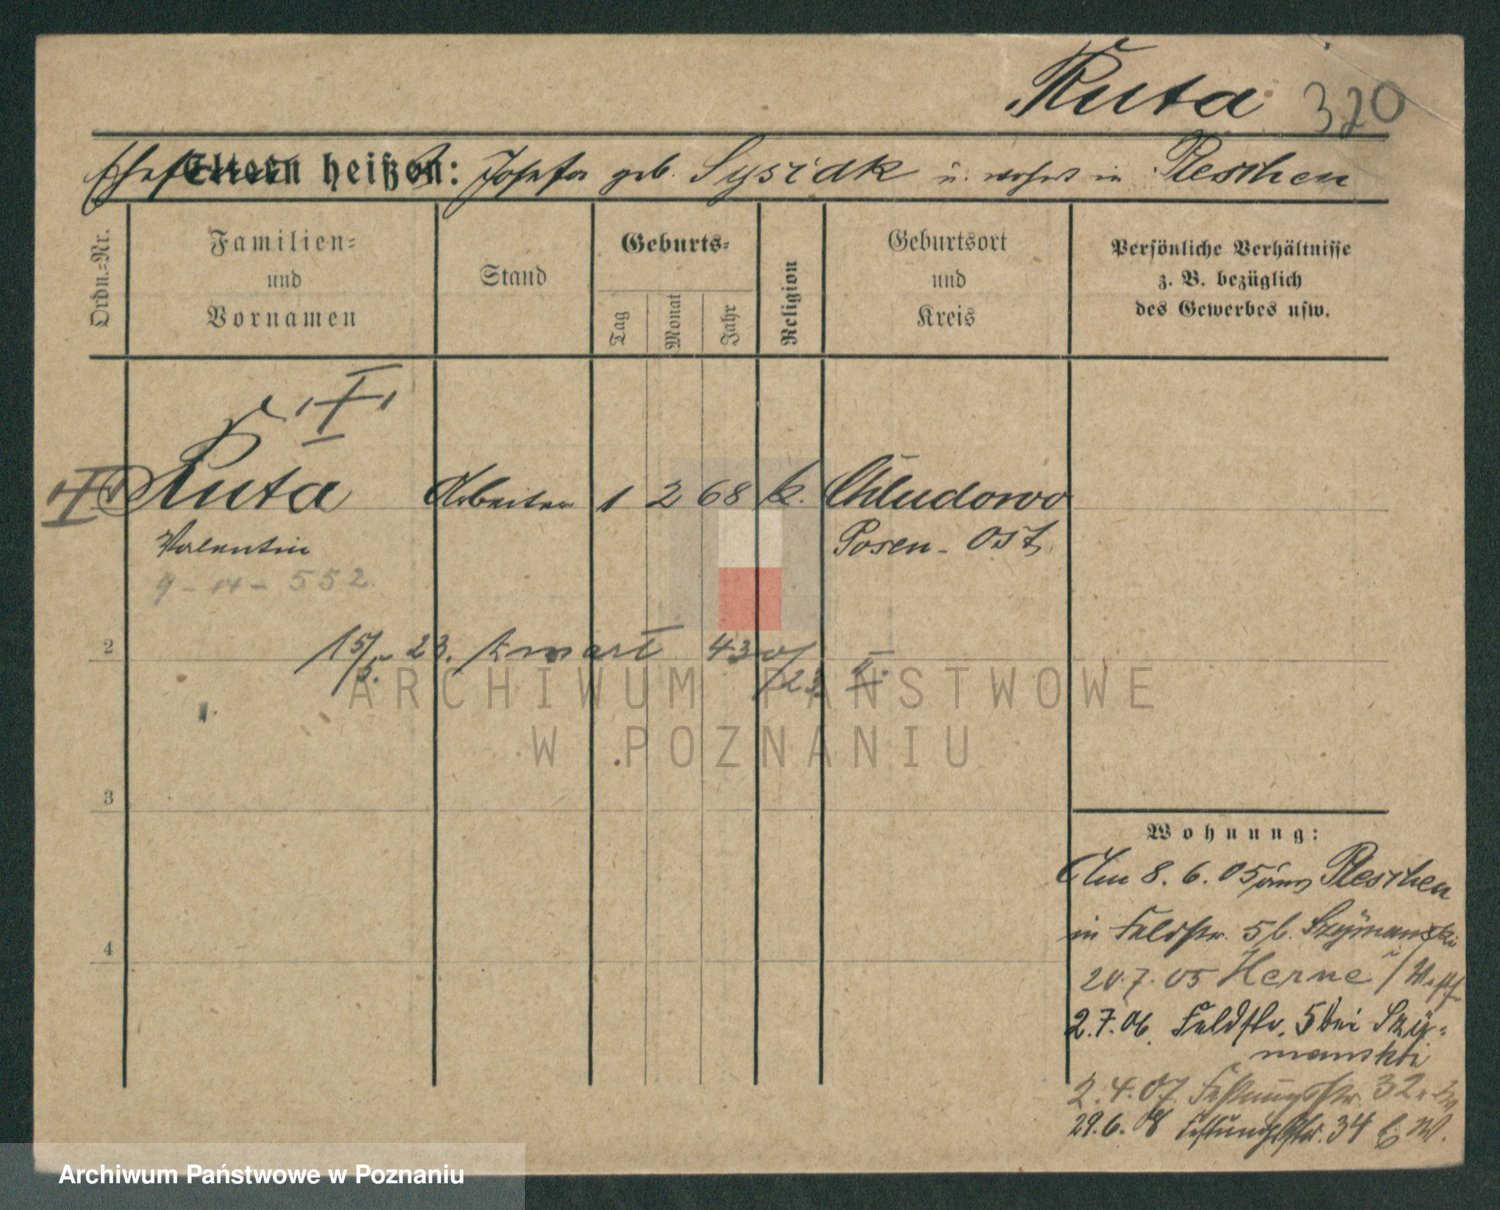 Ruta 320
Ehefrau Eltern heißen: Josefa geb. Sysidk u. wohnt in Pleschen
Ordn.-Nr.
Familien-
und
Vornamen
Stand
Geburts-
Tag
Monat
Jahr
Religion
Geburtsort
und
Kreis
Persönliche Verhältnisse
z. B. bezüglich
des Gewerbes usw.
I
I Ruta Arbeiter 1 2 68 k. Chludowo
Valentin Posen-Ost
9-14-552
2
15/5. 23. 430/23. II.
3
4
Wohnung:
Am 8. 6. 05 aus Pleschen
in Feldstr. 5 b. Szymanski
20.7.05 Herne i/Westf
2.7.06 Feldstr. 5 bei Szy-
manski
2.4.07 Festungsstr. 32
29.6.08 Festungsstr. 34 E. W.
ARCHIWUM PAŃSTWOWE
W POZNANIU
Archiwum Państwowe w Poznaniu